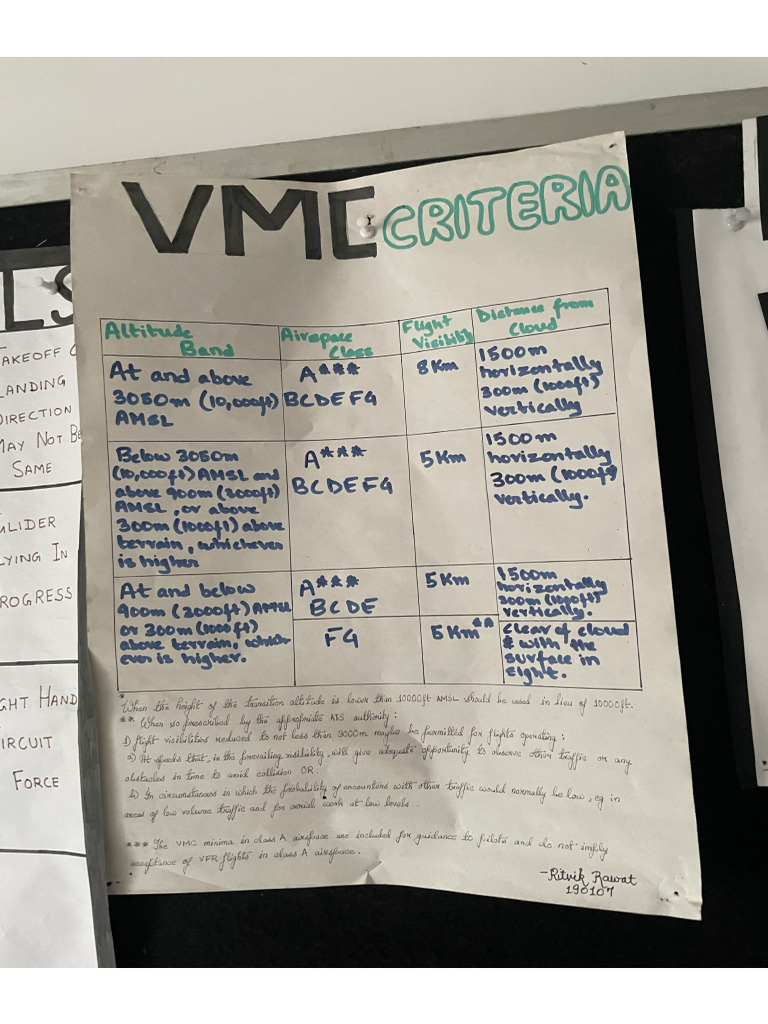 VMC CRITERIA
Altitude Band
Airspace Class
Flight Visibility
Distance from Cloud
At and above
3050m (10,000ft)
AMSL
A***
BCDEFG
8 Km
1500m
horizontally
300m (1000ft)
vertically
Below 3050m
(10,000ft) AMSL and
above 900m (3000ft)
AMSL, or above
300m (1000ft) above
terrain, whichever
is higher
A***
BCDEFG
5 Km
1500m
horizontally
300m (1000ft)
vertically.
At and below
900m (3000ft) AMSL
or 300m (1000ft)
above terrain, which-
ever is higher.
A***
BCDE
5 Km
1500m
horizontally
300m (1000ft)
vertically.
FG
5 Km**
Clear of cloud
& with the
surface in
sight.
*
When the height of the transition altitude is lower than 10000ft AMSL should be used in lieu of 10000ft.
** When so prescribed by the appropriate ATS authority:
1) flight visibilities reduced to not less than 3000m maybe be permitted for flights operating:
a) At speeds that, in the prevailing visibility, will give adequate opportunity to observe other traffic or any
obstacles in time to avoid collision OR.
b) In circumstances in which the probability of encounters with other traffic would normally be low, eg in
areas of low volume traffic and for aerial work at low levels.
*** The VMC minima in class A airspace are included for guidance to pilots and do not imply
acceptance of VFR flights in class A airspace.
-Ritvik Rawat
190107
LS
TAKEOFF
LANDING
DIRECTION
MAY NOT BE
SAME
GLIDER
LYING IN
ROGRESS
GHT HAND
IRCUIT
FORCE